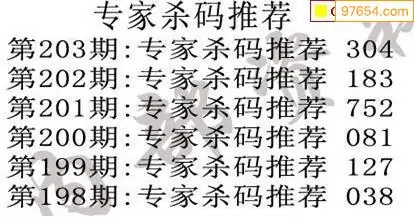 专家杀码推荐
97654.com
第203期:专家杀码推荐 304
第202期:专家杀码推荐 183
第201期:专家杀码推荐 752
第200期:专家杀码推荐 081
第199期:专家杀码推荐 127
第198期:专家杀码推荐 038